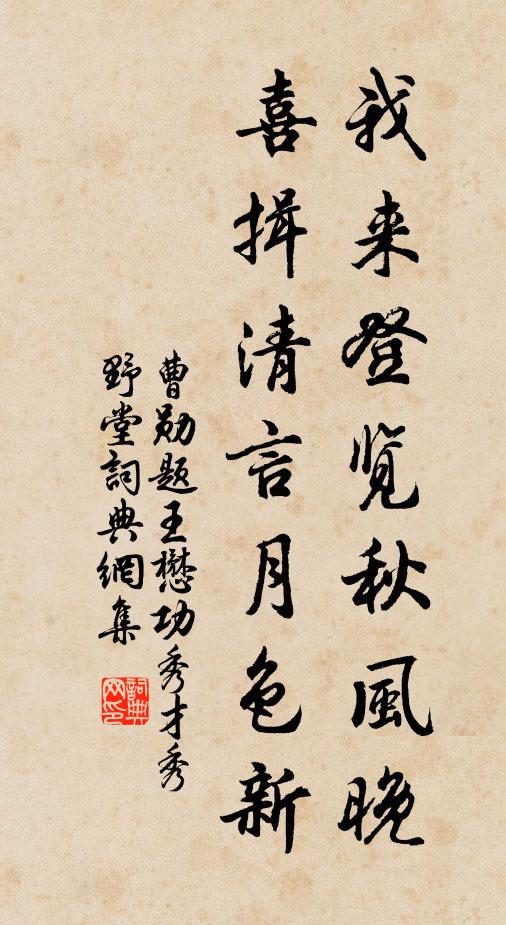 我来登览秋風晚
喜揖清言月色新
曹勋题王懋功秀才秀
野堂詞典網集
詞典网印